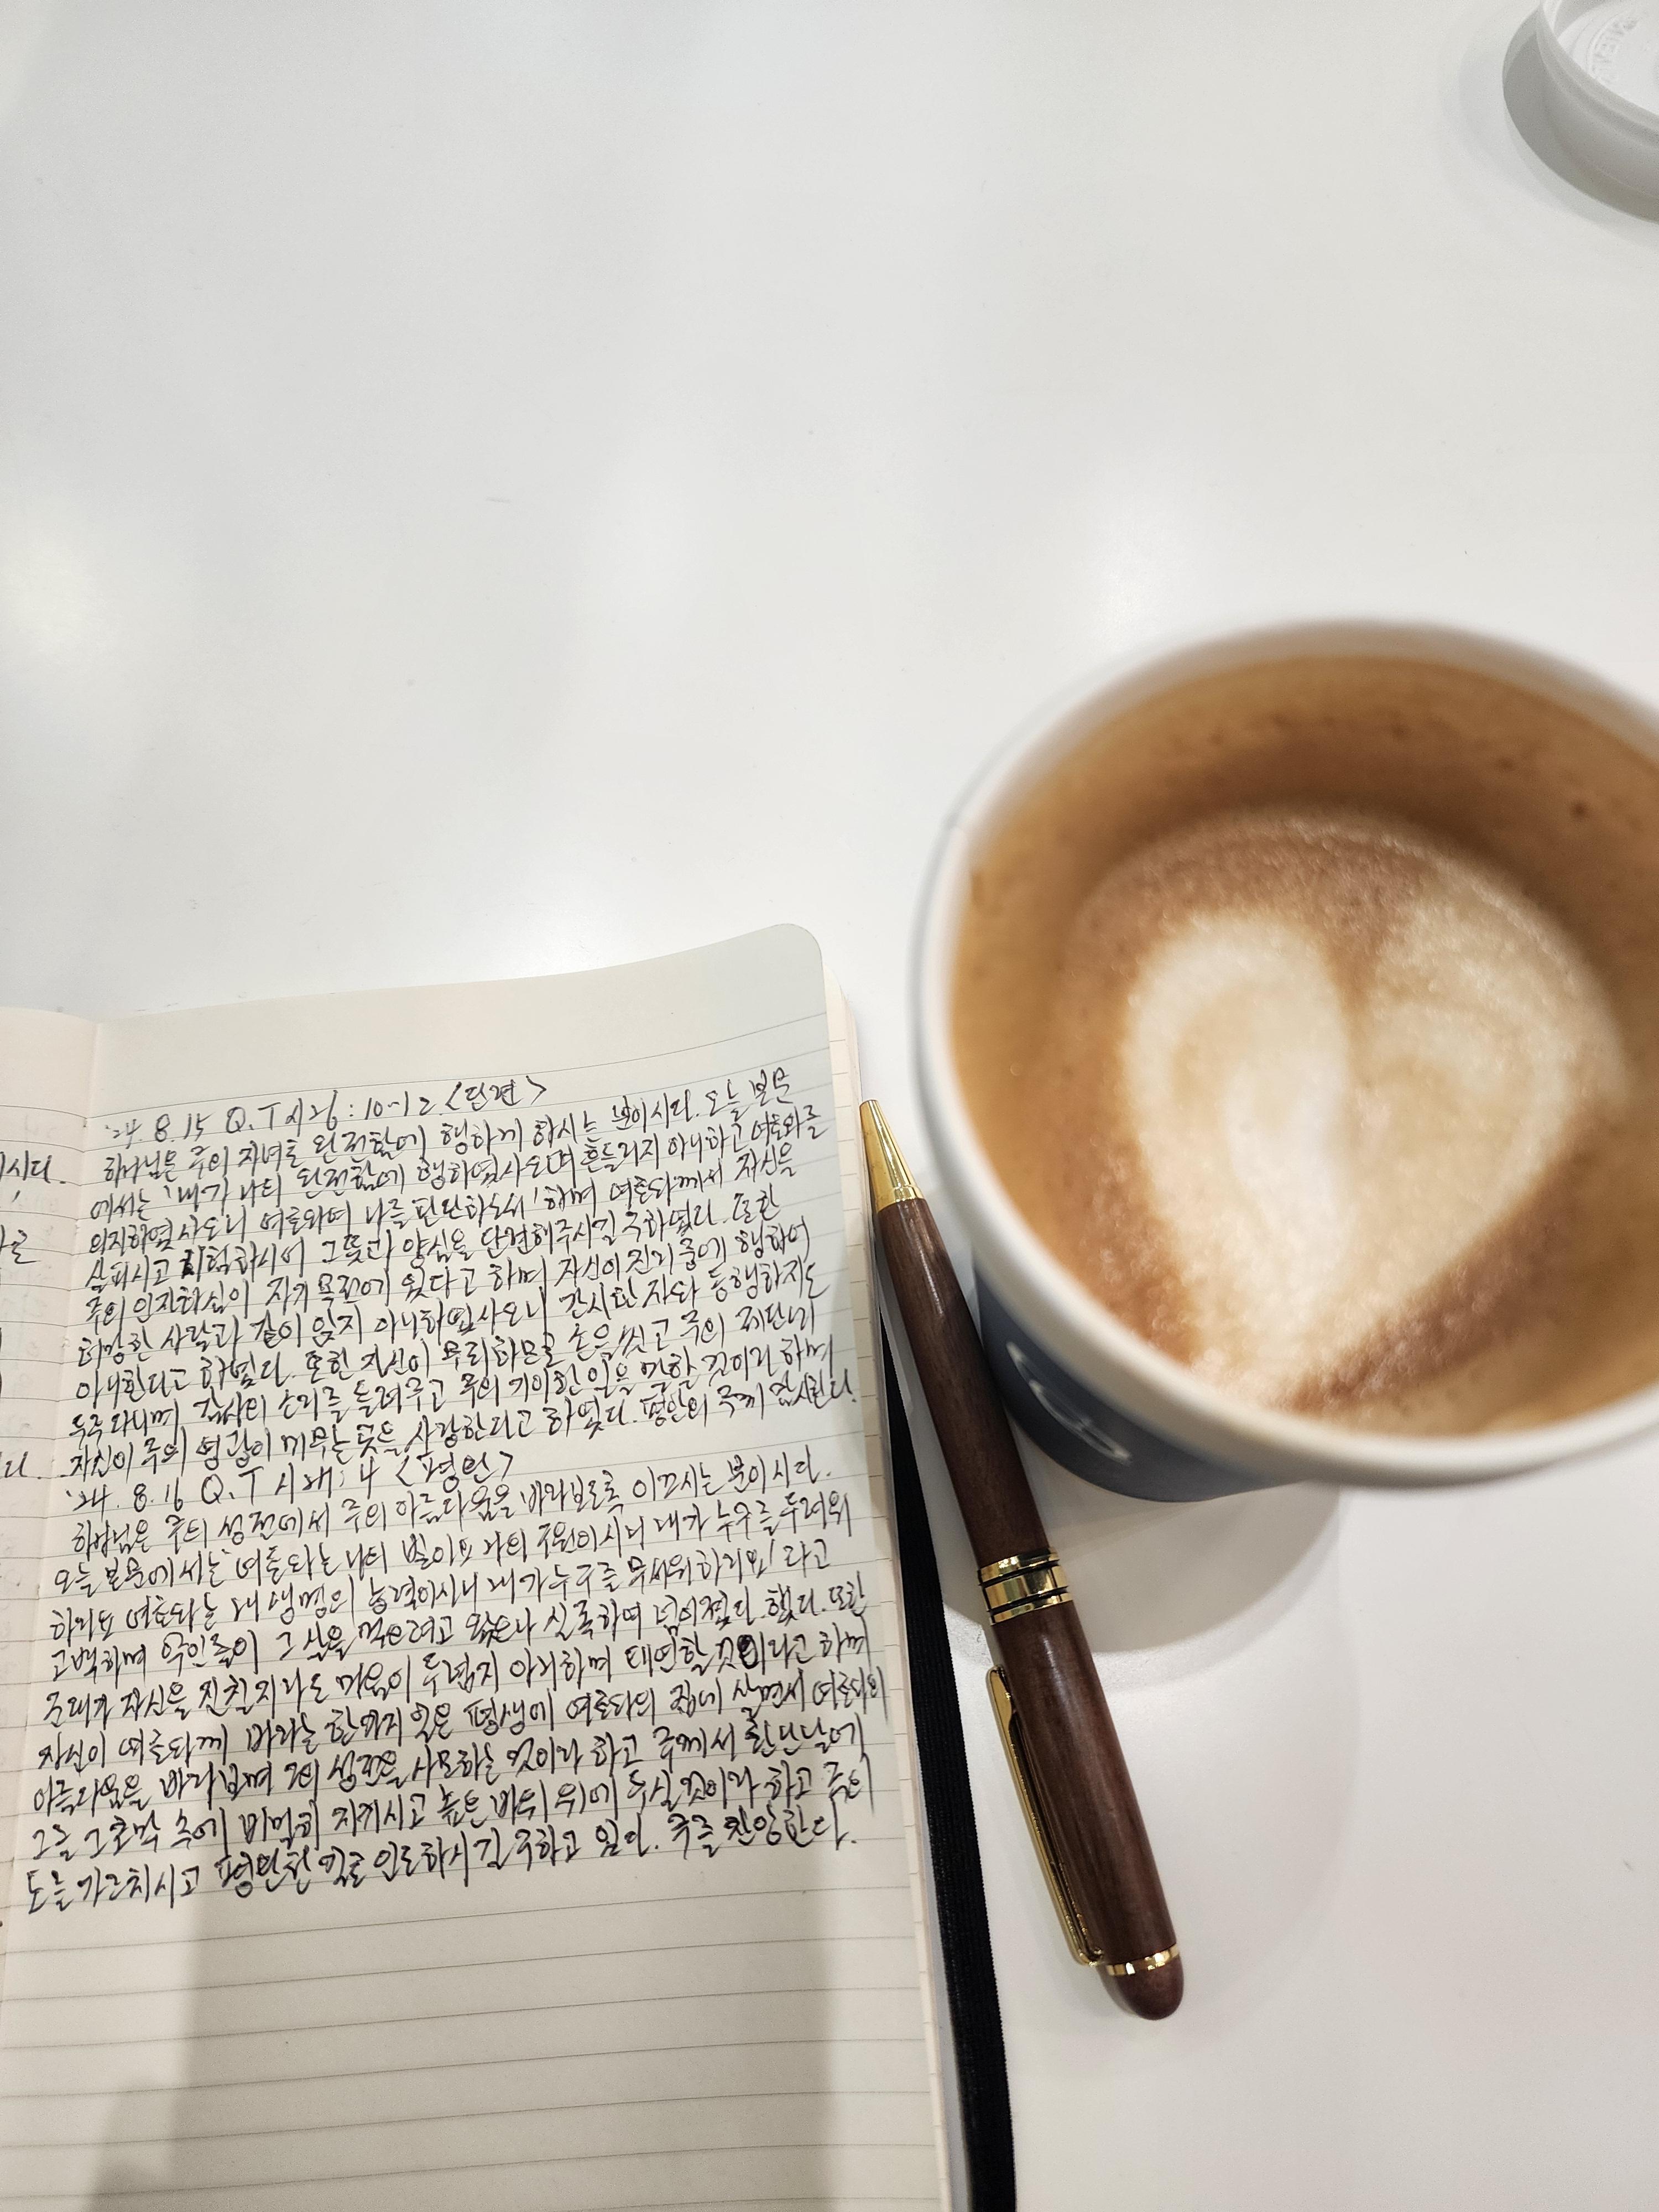 '24. 8. 15 Q.T 시26:10-12 <단련>
하나님은 주의 자녀를 완전함에 행하게 하시는 분이시다. 오늘 본문
에서는 '내가 나의 완전함에 행하였사오며 흔들리지 아니하고 여호와를
의지하였사오니 여호와여 나를 판단하소서' 하며 여호와께서 자신을
살피시고 시험하시어 그 뜻과 양심을 단련해주시길 구하였다. 또한
주의 인자하심이 자기 목전에 있다고 하며 자신이 진리 중에 행하여
허망한 사람과 같이 앉지 아니하였사오니 간사한 자와 동행하지도
아니한다고 하였다. 또한 자신이 무죄하므로 손을 씻고 주의 제단에
두루 다니며 감사의 소리를 들려주고 주의 기이한 일을 말할 것이라 하며
자신이 주의 영광이 머무는 곳을 사랑한다고 하였다. 평안의 주께 감사한다.
'24. 8. 16 Q.T 시 4 <평안>
하나님은 주의 성전에서 주의 아름다움을 바라보도록 이끄시는 분이시다.
오늘 본문에서는 '여호와는 나의 빛이요 나의 구원이시니 내가 누구를 두려워
하리요 여호와는 내 생명의 능력이시니 내가 누구를 무서워하리요' 라고
고백하며 악인들이 그 살을 먹으려고 왔으나 실족하여 넘어졌다 했다. 또한
군대가 자신을 진칠지라도 마음이 두렵지 아니하며 태연할 것이라고 하며
자신이 여호와께 바라는 한가지 일은 평생에 여호와의 집에 살면서 여호와의
아름다움을 바라보며 그의 성전을 사모하는 것이라 하고 주께서 환난날에
그를 그 초막 속에 비밀히 지키시고 높은 바위 위에 두실 것이라 하고 주의
도를 가르치시고 평탄한 길로 인도하시길 구하고 있다. 주를 찬양한다.